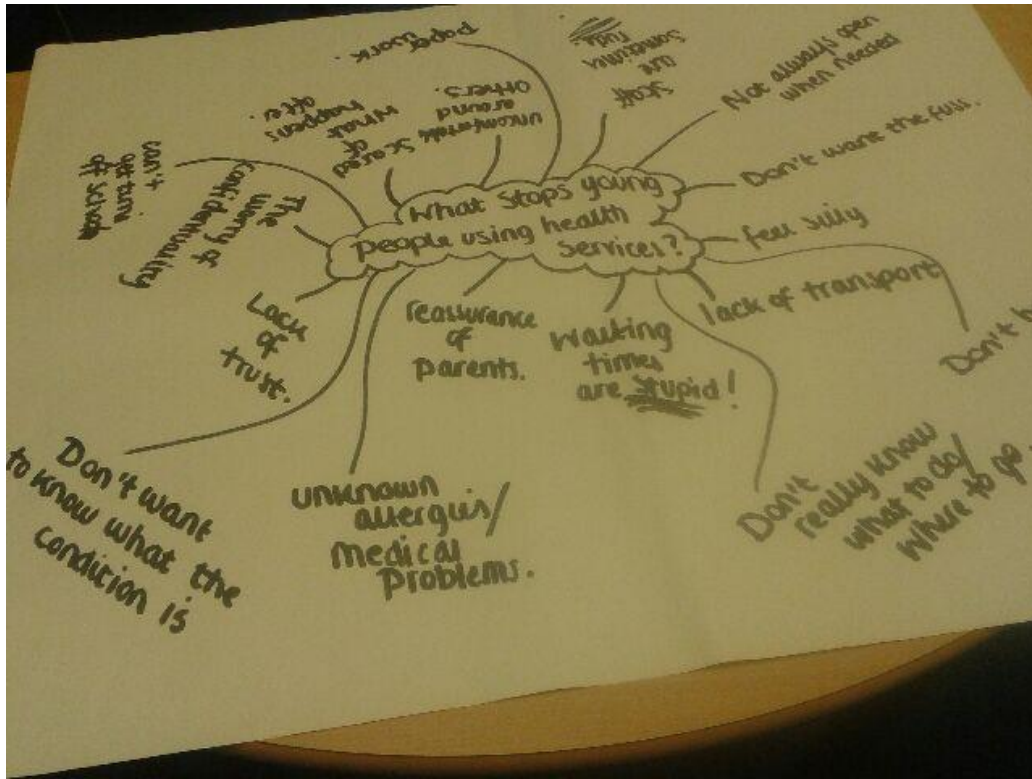 What stops young
people using health
services?
paper
work.
staff
are
sometimes
rude.
Not always open
when needed
Don't want the fuss.
feel silly
Don't
lack of transport
Don't
really know
what to do/
where to go.
Waiting
times
are stupid!
reassurance
of
parents.
unknown
allergies/
medical
problems.
Don't want
to know what the
condition is
Lack
of
trust.
The
worry of
confidentiality
can't
get time
off school
scared
of
what
happens
after.
uncomfortable
around
others.